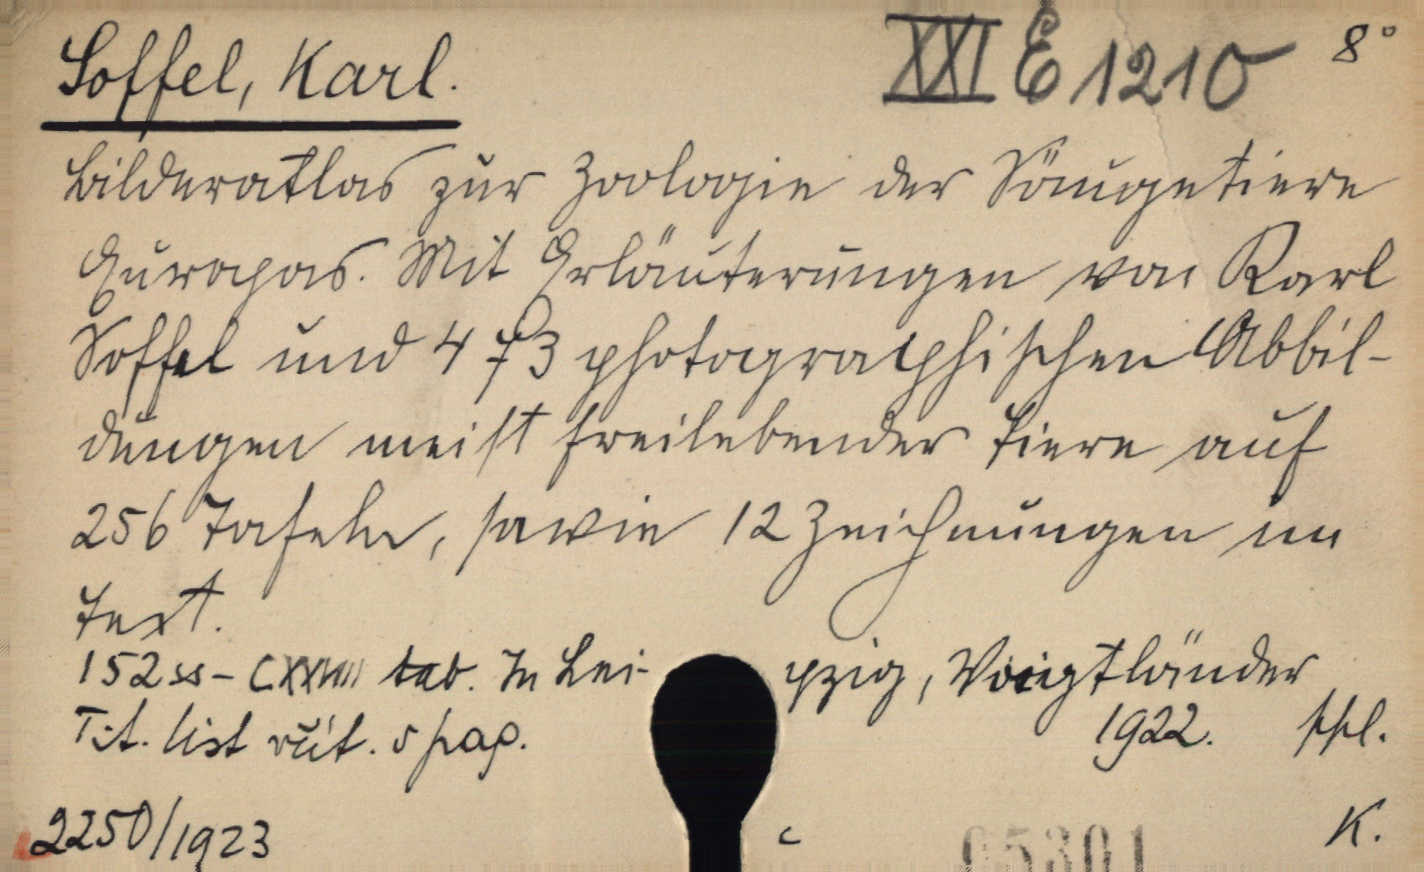 Soffel, Karl. XXI E 1210 8°
Bilderatlas zur Zoologie der Säugetiere
Europas. Mit Erläuterungen von Karl
Soffel und 473 photographischen Abbil-
dungen meist freilebender Tiere auf
256 Tafeln, sowie 12 Zeichnungen im
Text.
152 ss - tab. In Lei- pzig, Voigtländer
Tit. list 1922. ppl.
2250/1923 c 05301 K.